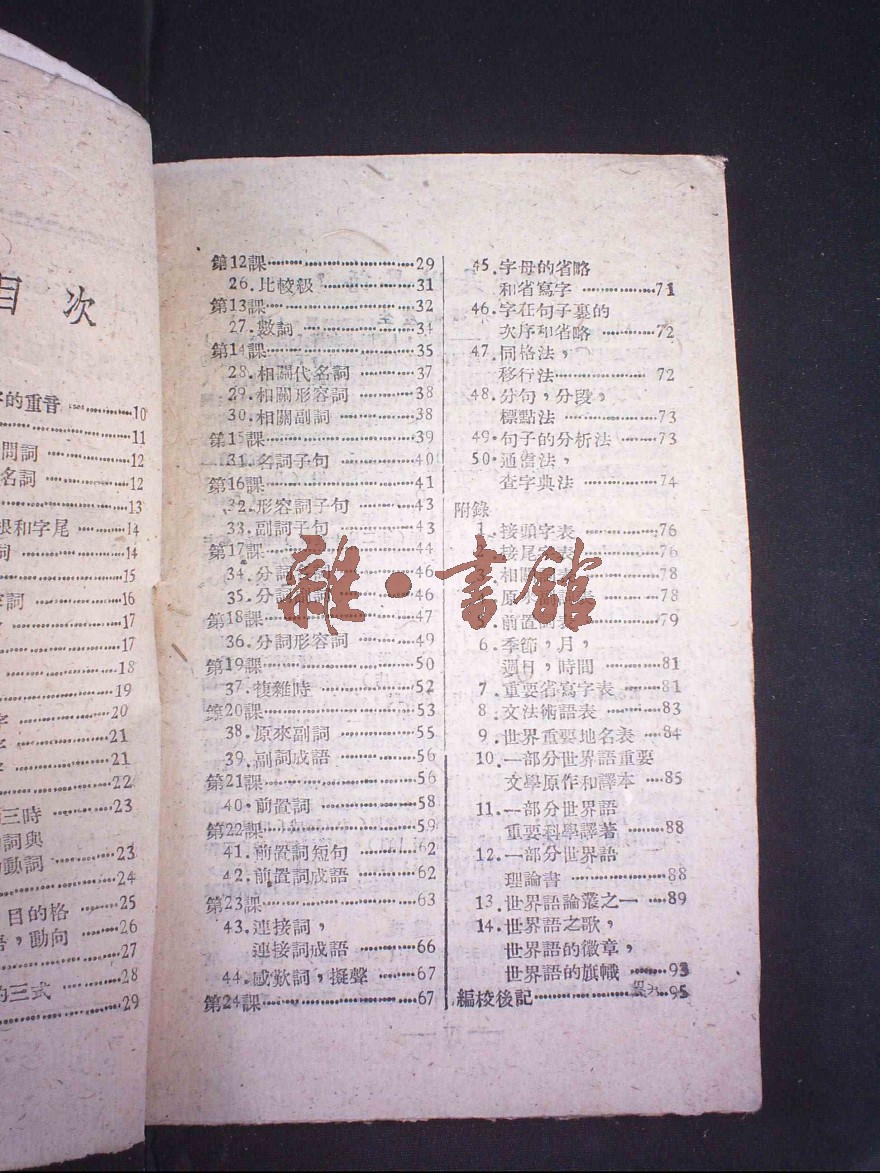 目 次
的重音 …… 10
…… 11
問詞 …… 12
名詞 …… 12
…… 13
根和字尾 …… 14
詞 …… 14
…… 15
詞 …… 16
…… 17
…… 17
…… 18
…… 19
字 …… 20
字 …… 21
…… 21
…… 22
三時 …… 23
詞與
動詞 …… 23
…… 24
目的格 …… 25
，動向 …… 26
…… 27
的三式 …… 28
…… 29
第12課 …… 29
26.比較級 …… 31
第13課 …… 32
27.數詞 …… 34
第14課 …… 35
28.相關代名詞 …… 37
29.相關形容詞 …… 38
30.相關副詞 …… 38
第15課 …… 39
31.名詞子句 …… 40
第16課 …… 41
32.形容詞子句 …… 43
33.副詞子句 …… 43
第17課 …… 44
34.分詞 …… 46
35.分詞副詞 …… 46
第18課 …… 47
36.分詞形容詞 …… 49
第19課 …… 50
37.複雜時 …… 52
第20課 …… 53
38.原來副詞 …… 55
39.副詞成語 …… 56
第21課 …… 56
40.前置詞 …… 58
第22課 …… 59
41.前置詞短句 …… 62
42.前置詞成語 …… 62
第23課 …… 63
43.連接詞，
連接詞成語 …… 66
44.感歎詞，擬聲 …… 67
第24課 …… 67
45.字母的省略
和省寫字 …… 71
46.字在句子裏的
次序和省略 …… 72
47.同格法，
移行法 …… 72
48.分句，分段，
標點法 …… 73
49.句子的分析法 …… 73
50.通信法，
查字典法 …… 74
附錄
1.接頭字表 …… 76
2.接尾字表 …… 76
3.相關 表 …… 78
4.原來 表 …… 78
5.前置詞表 …… 79
6.季節，月，
週日，時間 …… 81
7.重要省寫字表 …… 81
8.文法術語表 …… 83
9.世界重要地名表 …… 84
10.一部分世界語重要
文學原作和譯本 …… 85
11.一部分世界語
重要科學譯著 …… 88
12.一部分世界語
理論書 …… 88
13.世界語論叢之一 …… 89
14.世界語之歌，
世界語的徽章，
世界語的旗幟 …… 93
編校後記 …… 95
雜·書館